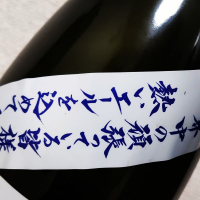 本中の頑張っている皆様
熱いエールを込めて